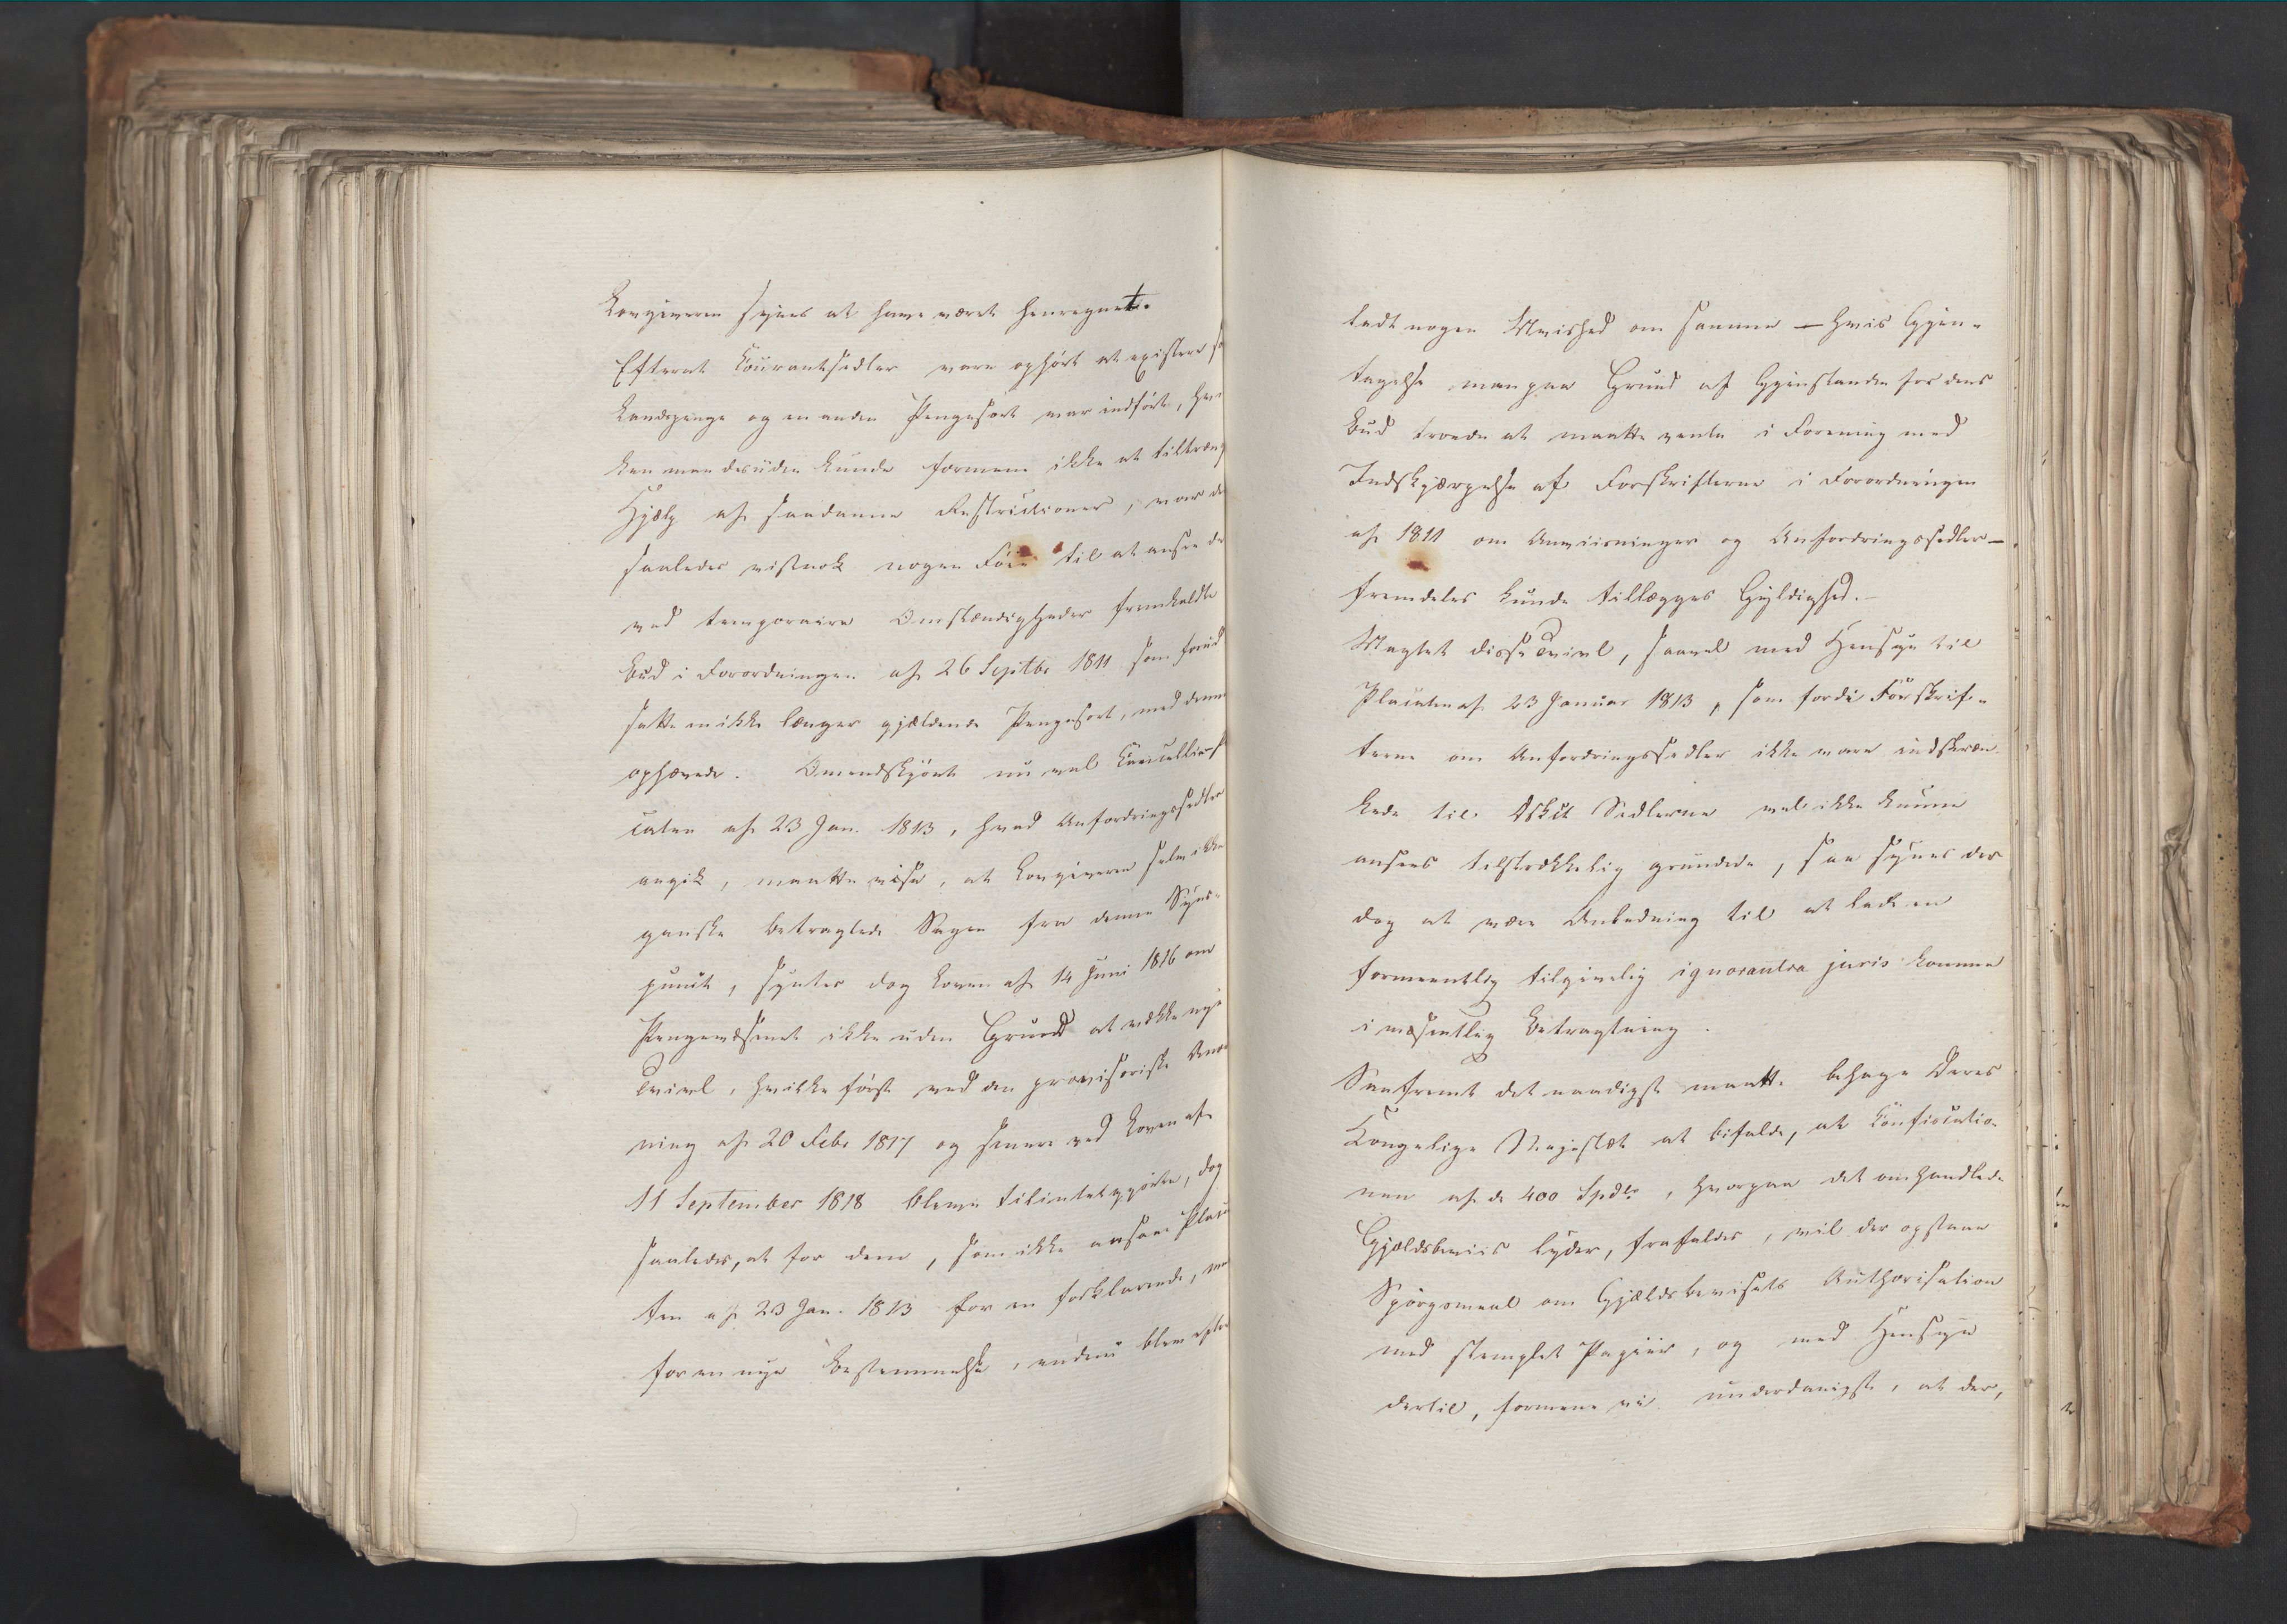 Lovgiveren synes at have været henregnet.
Efterat Courantsedler vare ophørt at existere so
Landspenge og en anden Pengesort var indført, hvi
ken man desuden kunde formene ikke at tiltræng
Hjælp af saadanne Restrictioner, var de
saaledes vistnok nogen Føie til at ansee de
ved temporaire Omstændigheder fremkaldte
Bud i Forordningen af 26 Septbr 1811 som forud
satte en ikke længer gjældende Pengesort, med denne
ophævede. Omendskjønt nu vel Cancellie-P
caten af 23 Jan. 1813, hvad Anfordringssedler
angik, maatte vise, at Lovgiveren selv ikke
ganske betragtede Sagen fra denne Syns-
punct, syntes dog Loven af 14 Juni 1816 om
Pengevæsenet ikke uden Grund at vække nye
Tvivl, hvilke først ved den provisoriske Anord
ning af 20 Febr 1817 og senere ved Loven af
11 September 1818 bleve tilintetgjorte, dog
saaledes, at for dem, som ikke ansaae Placa
ten af 23 Jan. 1813 for en forklarende, men
for en nye Bestemmelse, endnu blev efter
ladt nogen Uvished om samme — hvis Gjen-
tagelse man paa Grund af Gjenstanden for dens
Bud troede at maatte vente i Forening med
Indskjærpelse af Forskrifterne i Forordningen
af 1811 om Anviisninger og Anfordringssedler —
fremdeles kunde tillægges Gyldighed. —
Uagtet disse Tvivl, saavel med Hensyn til
Placaten af 23 Januar 1813, som fordi Forskrif-
terne om Anfordringssedler ikke vare indskræn
kede til Sedlerne vel ikke kunne
ansees tilstrækkelig grundede, saa synes der
dog at være Anledning til at lade en
formeentlig tilgivelig ignorantia juris komme
i væsentlig Betragtning.
Saafremt det naadigst maatte behage Deres
Kongelige Majestæt at bifalde, at Confiscatio-
nen af de 400 Spdlr, hvorpaa det omhandlede
Gjældsbeviis lyder, frafaldes, vil der opstaae
Spørgsmaal om Gjældsbevisets Authorisation
med stemplet Papiir, og med Hensyn
dertil, formene vi underdanigst, at der,